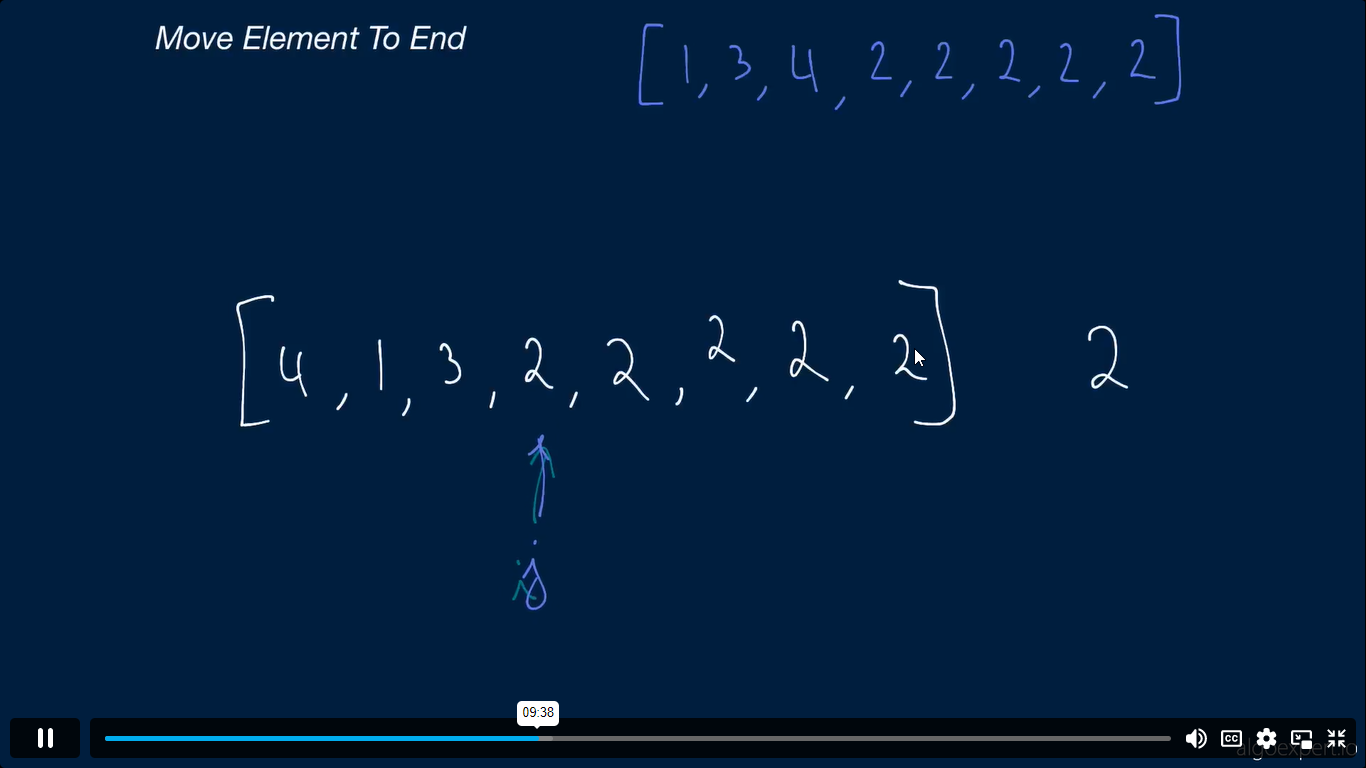 Move Element To End
[1, 3, 4, 2, 2, 2, 2, 2]
[4, 1, 3, 2, 2, 2, 2, 2] 2
i j
09:38
CC
algoexpert.io